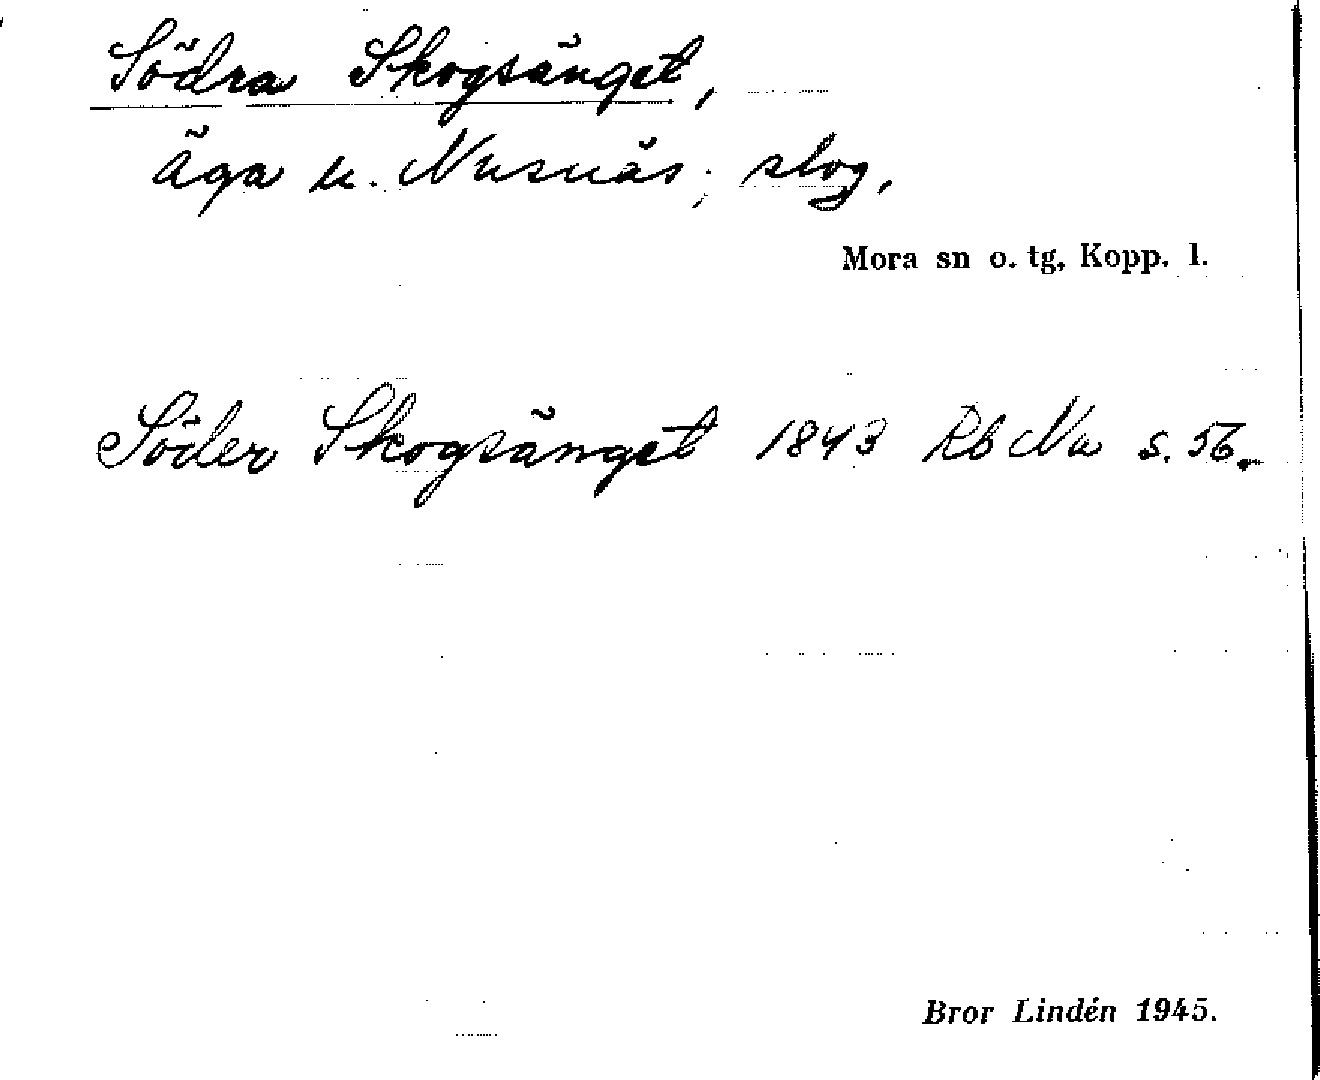 Södra Skogsänget,
Äga u. Nusnäs; skog.
Mora sn o. tg. Kopp. l.
Söder Skogsänget 1843 Rb Nu s. 56.
Bror Lindén 1945.